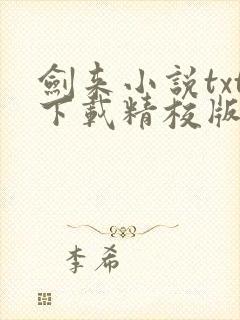 劍来小說txt
下載精校版
李希